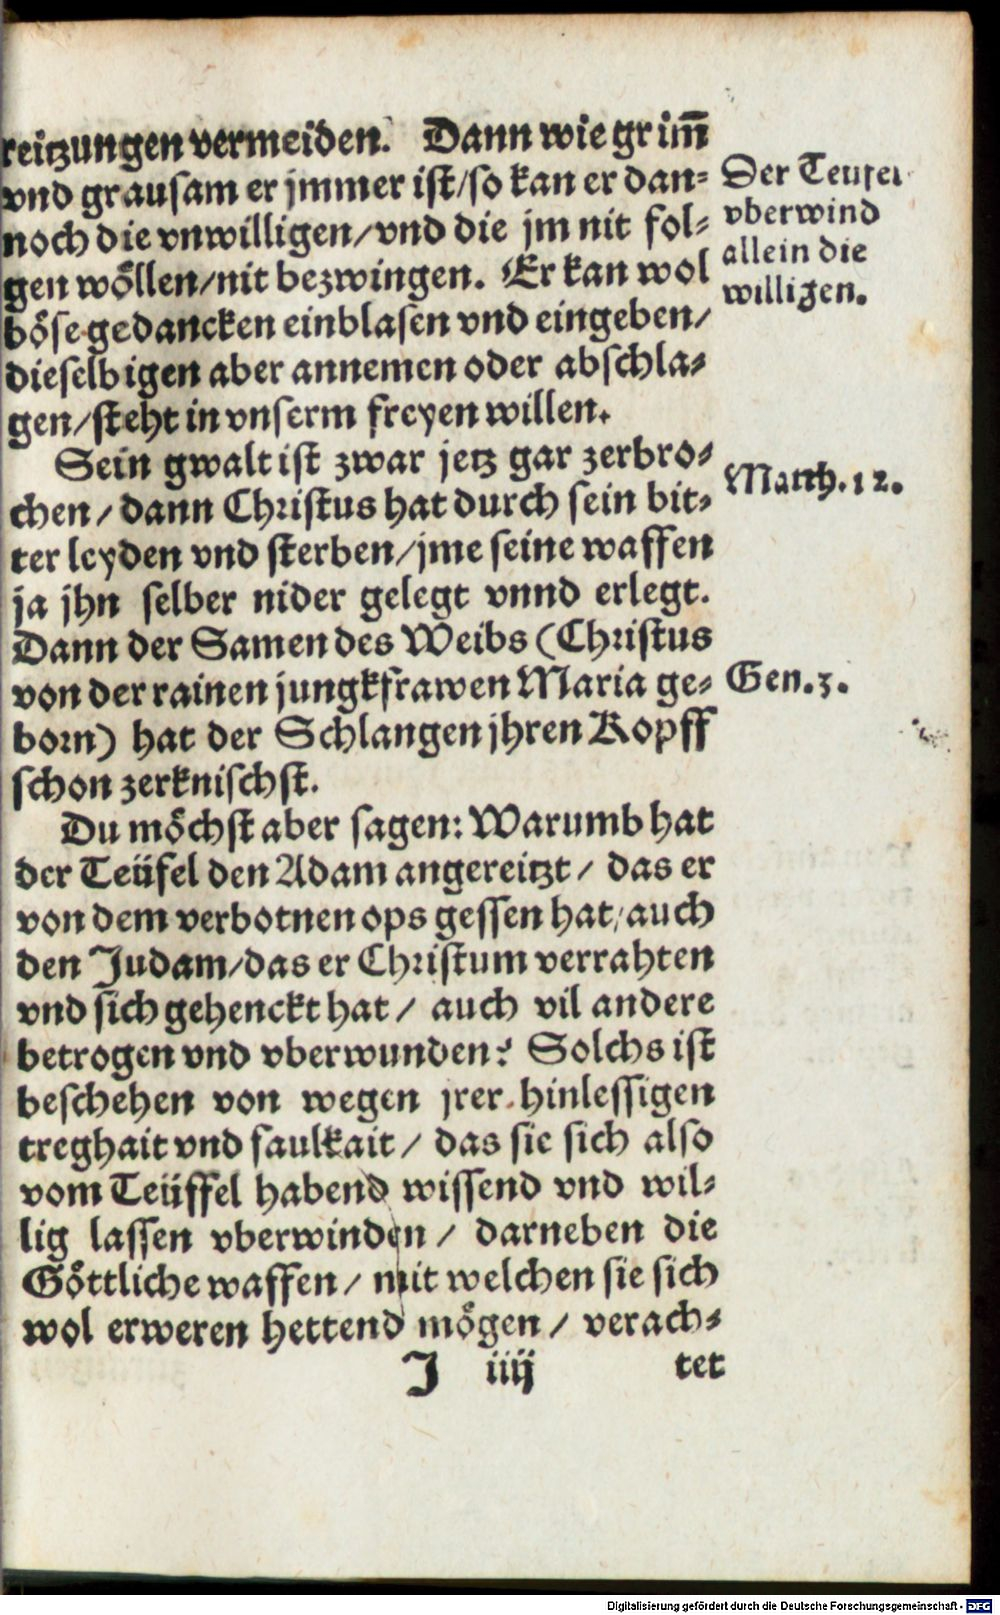 reitzungen vermeiden. Dann wie grim̄
vnd grausam er jmmer ist/so kan er dan⸗
noch die vnwilligen/vnd die jm nit fol⸗
gen woͤllen/nit bezwingen. Er kan wol
boͤse gedancken einblasen vnd eingeben/
dieselbigen aber annemen oder abschla⸗
gen/steht in vnserm freyen willen.
Der Teufel
vberwind
allein die
willigen.
Sein gwalt ist zwar jetz gar zerbro⸗
chen/dann Christus hat durch sein bit⸗
ter leyden vnd sterben/jme seine waffen
ja jhn selber nider gelegt vnnd erlegt.
Dann der Samen des Weibs (Christus
von der rainen jungkfrawen Maria ge⸗
born) hat der Schlangen jhren Kopff
schon zerknischst.
Matth.12.
Gen.3.
Du moͤchst aber sagen: Warumb hat
der Teüfel den Adam angereitzt/ das er
von dem verbotnen ops gessen hat/auch
den Judam/das er Christum verrahten
vnd sich gehenckt hat/ auch vil andere
betrogen vnd vberwunden? Solchs ist
beschehen von wegen jrer hinlessigen
treghait vnd faulkait/ das sie sich also
vom Teüffel habend wissend vnd wil⸗
lig lassen vberwinden/ darneben die
Goͤttliche waffen/ mit welchen sie sich
wol erweren hettend moͤgen/ verach⸗
J iiij tet
Digitalisierung gefördert durch die Deutsche Forschungsgemeinschaft - DFG